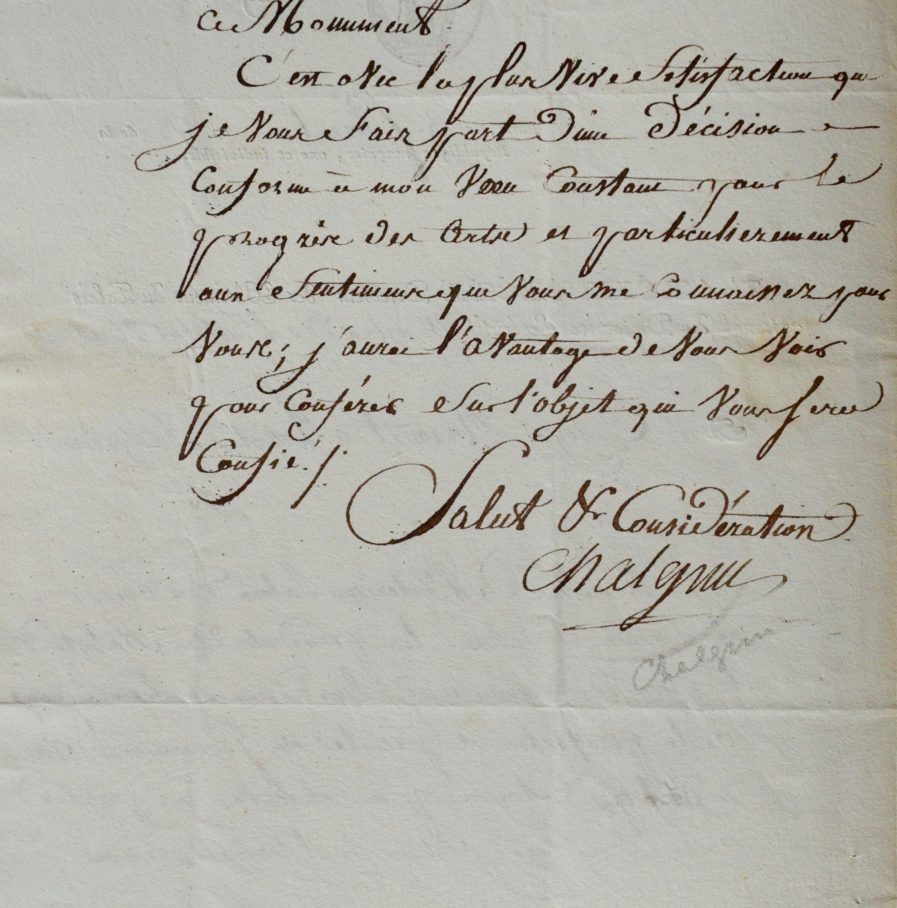 ce Monument.
C'est avec la plus vive satisfaction que
je vous fais part d'une décision
conforme à mon vœu constant pour le
progrès des arts et particulierement
aux sentimens que vous me connaissez pour
vous; j'aurai l'avantage de vous voir
pour conférer sur l'objet qui vous sera
confié./.
Salut & Considération
Chalgrin
Chalgrin